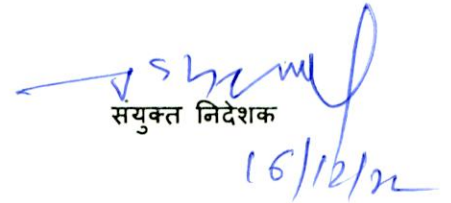 संयुक्त निदेशक
16/12/22